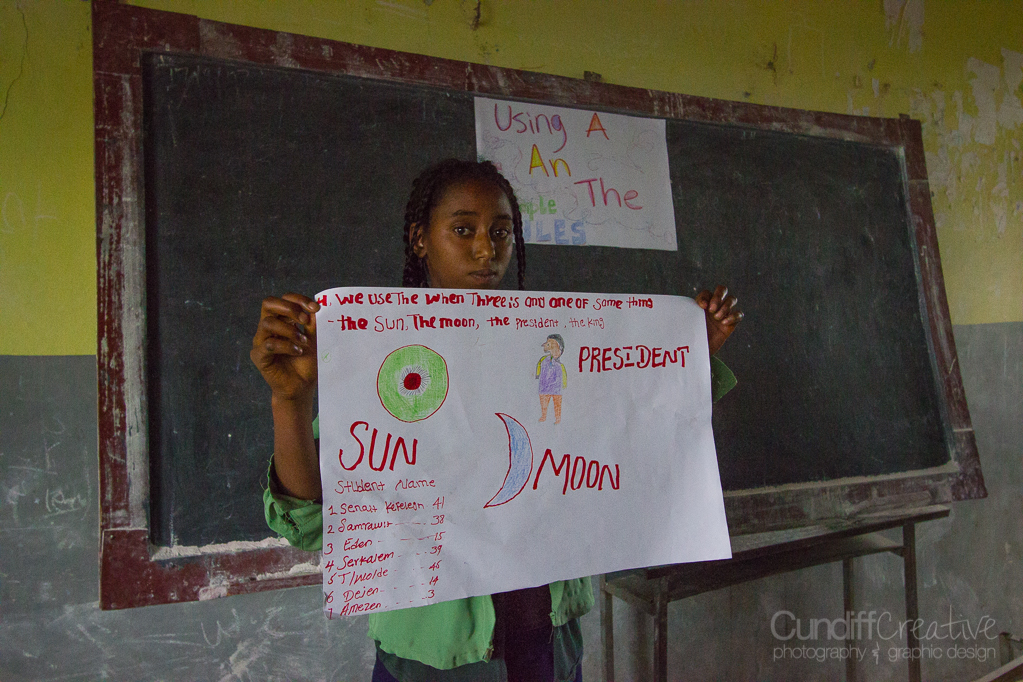 Using A
An
The
4. We use The when Three is and one of same thing
- the Sun, The moon, the president, the king
PRESIDENT
SUN
MOON
Student Name
1 Senait Kefelegn 41
2 Samrawit 38
3 Eden 15
4 Serkalem 39
5 T/wolde 45
6 Dejen 14
7 Amezen 3
CundiffCreative
photography & graphic design